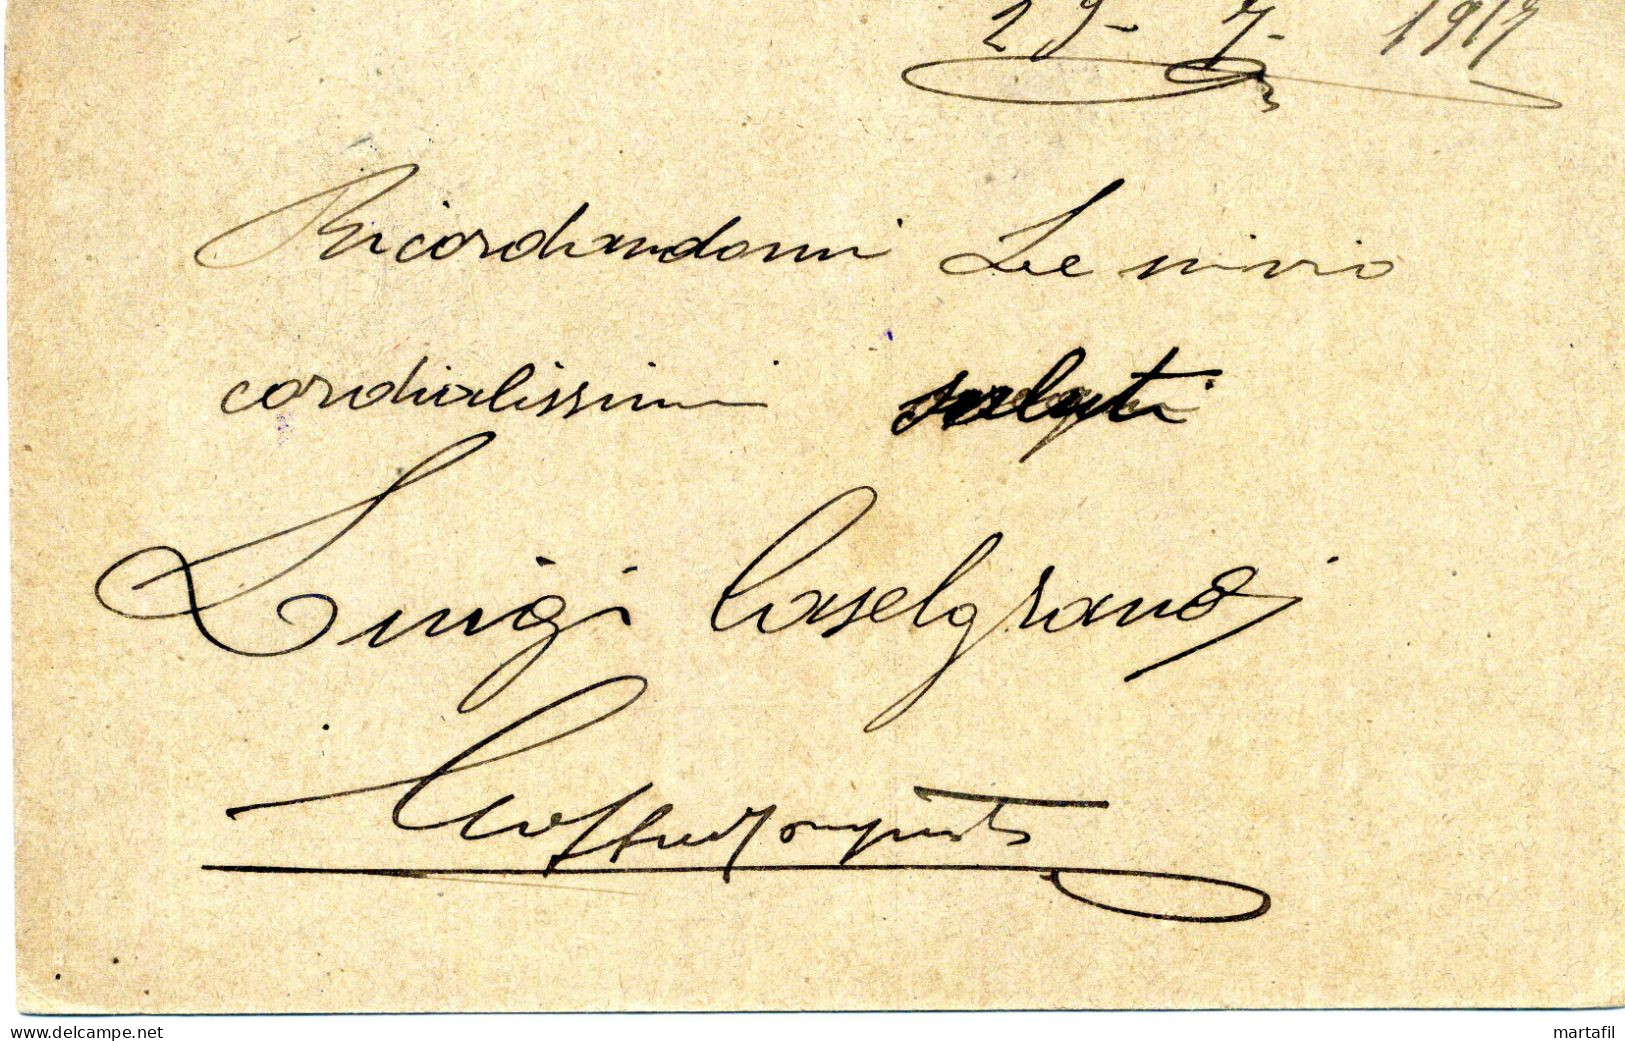 29- 7- 1917
Ricordiandomi Le invio
cordialissimi saluti
Luigi Caselgrandi
www.delcampe.net
martafil